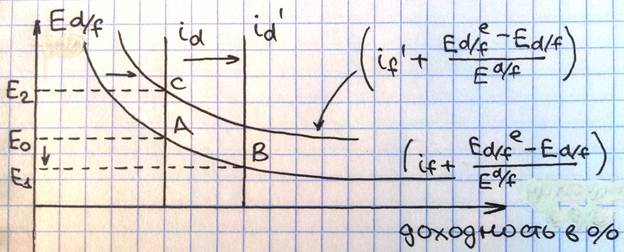 Ed/f
id
id'
(if' + (Ed/f^e - Ed/f) / E^d/f)
E2
C
E0
A
B
E1
(if + (Ed/f^e - Ed/f) / E^d/f)
доходность в %